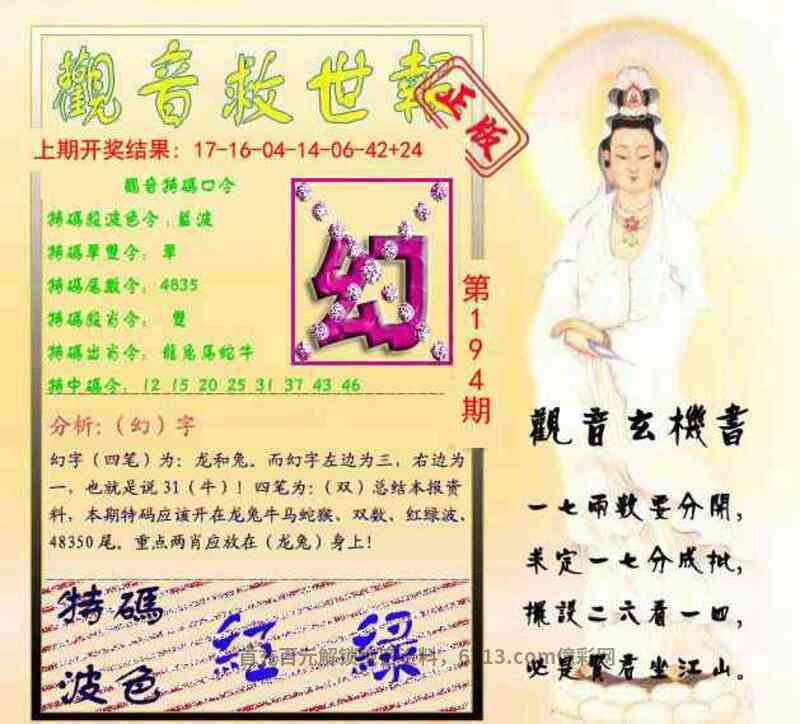 觀音救世報
正版
上期开奖结果：17-16-04-14-06-42+24
觀音特碼口令
特碼殺波色令：藍波
特碼單雙令：單
特碼尾數令：4835
特碼殺肖令：雙
特碼出肖令：龍兔馬蛇牛
特中碼令：12 15 20 25 31 37 43 46
幻
第194期
分析:（幻）字
幻字（四笔）为：龙和兔。而幻字左边为三，右边为
一，也就是说31（牛）！四笔为：（双）总结本报资
料，本期特码应该开在龙兔牛马蛇猴、双数、红绿波、
48350尾。重点两肖应放在（龙兔）身上！
特碼
波色
紅 綠
觀音玄機書
一七兩數要分開，
來定一七分成批，
擺設二六看一四，
必是賢君坐江山。
首充百元解锁 料，6 13.com億彩网